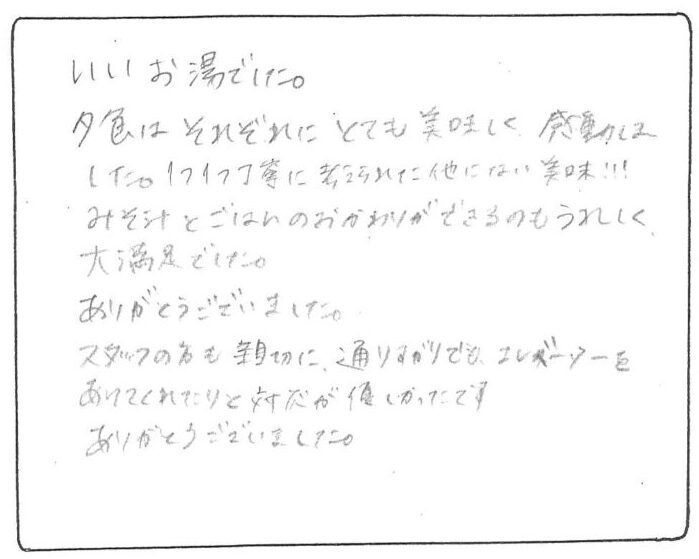 いいお湯でした。
夕食はそれぞれにとても美味しく、感動しま
した。1つ1つ丁寧に考えられた他にない美味!!!
みそ汁とごはんのおかわりができるのもうれしく、
大満足でした。
ありがとうございました。
スタッフの方も親切に、通りすがりでも、エレベーターを
あけてくれたりと対応が優しかったです
ありがとうございました。